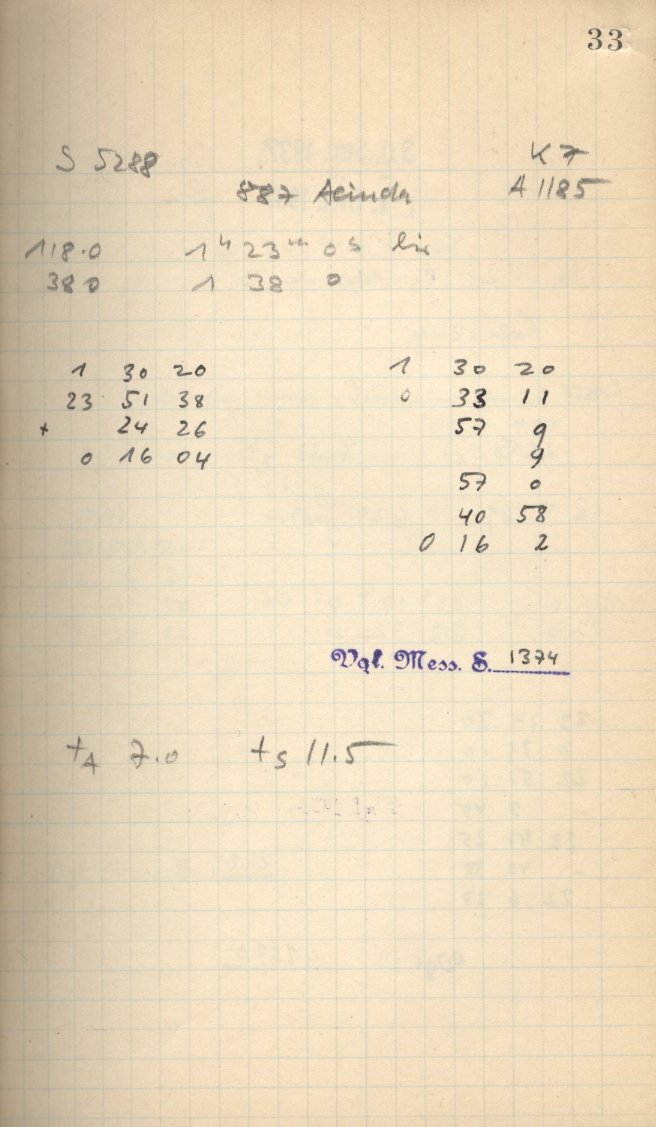 33
S 5288 K 7
887 Alinda A 1185
118.0 1h 23m 0s bis
38 0 1 38 0
1 30 20
23 51 38
+ 24 26
0 16 04
1 30 20
0 33 11
57 9
9
57 0
40 58
0 16 2
Vgl. Mess. S. 1374
tA 7.0 tS 11.5